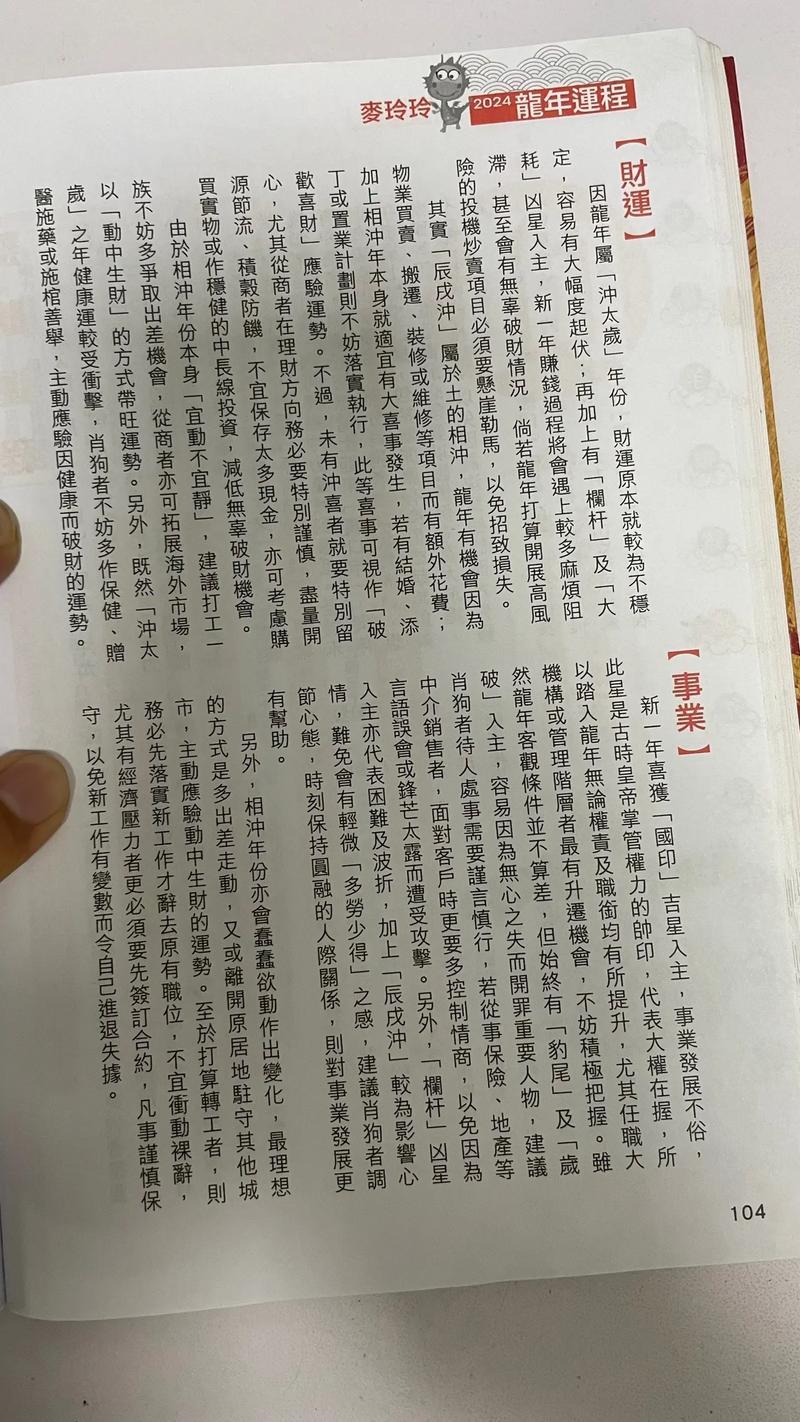 麥玲玲 2024 龍年運程
【財運】
因龍年屬「沖太歲」年份，財運原本就較為不穩
定，容易有大幅度起伏；再加上有「欄杆」及「大
耗」凶星入主，新一年賺錢過程將會遇上較多麻煩阻
滯，甚至會有無辜破財情況，倘若龍年打算開展高風
險的投機炒賣項目必須要懸崖勒馬，以免招致損失。
其實「辰戌沖」屬於土的相沖，龍年有機會因為
物業買賣、搬遷、裝修或維修等項目而有額外花費；
加上相沖年本身就適宜有大喜事發生，若有結婚、添
丁或置業計劃則不妨落實執行，此等喜事可視作「破
歡喜財」應驗運勢。不過，未有沖喜者就要特別留
心，尤其從商者在理財方向務必要特別謹慎，盡量開
源節流、積穀防饑，不宜保存太多現金，亦可考慮購
買實物或作穩健的中長線投資，減低無辜破財機會。
由於相沖年份本身「宜動不宜靜」，建議打工一
族不妨多爭取出差機會，從商者亦可拓展海外市場，
以「動中生財」的方式帶旺運勢。另外，既然「沖太
歲」之年健康運較受衝擊，肖狗者不妨多作保健、贈
醫施藥或施棺善舉，主動應驗因健康而破財的運勢。
【事業】
新一年喜獲「國印」吉星入主，事業發展不俗，
此星是古時皇帝掌管權力的帥印，代表大權在握，所
以踏入龍年無論權責及職銜均有所提升，尤其任職大
機構或管理階層者最有升遷機會，不妨積極把握。雖
然龍年客觀條件並不算差，但始終有「豹尾」及「歲
破」入主，容易因為無心之失而開罪重要人物，建議
肖狗者待人處事需要謹言慎行，若從事保險、地產等
中介銷售者，面對客戶時更要多控制情商，以免因為
言語誤會或鋒芒太露而遭受攻擊。另外，「欄杆」凶星
入主亦代表困難及波折，加上「辰戌沖」較為影響心
情，難免會有輕微「多勞少得」之感，建議肖狗者調
節心態，時刻保持圓融的人際關係，則對事業發展更
有幫助。
另外，相沖年份亦會蠢蠢欲動作出變化，最理想
的方式是多出差走動，又或離開原居地駐守其他城
市，主動應驗動中生財的運勢。至於打算轉工者，則
務必先落實新工作才辭去原有職位，不宜衝動裸辭，
尤其有經濟壓力者更必須要先簽訂合約，凡事謹慎保
守，以免新工作有變數而令自己進退失據。
104